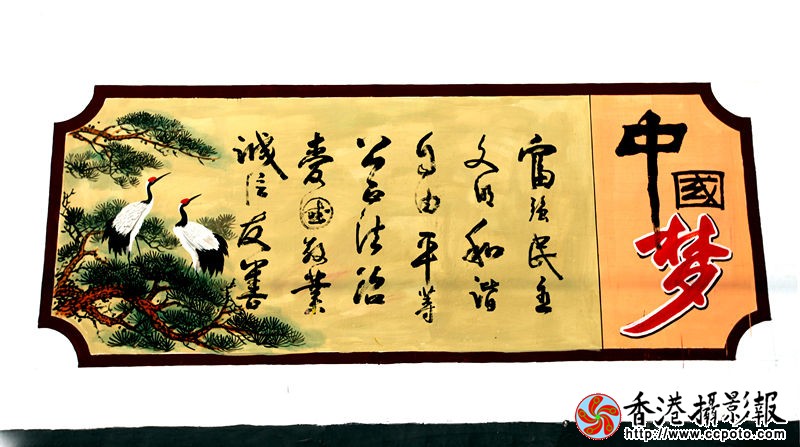 中國梦
富强民主
文明和谐
自由平等
公正法治
爱國敬業
誠信友善
香港攝影報
http://www.ccpoto.com